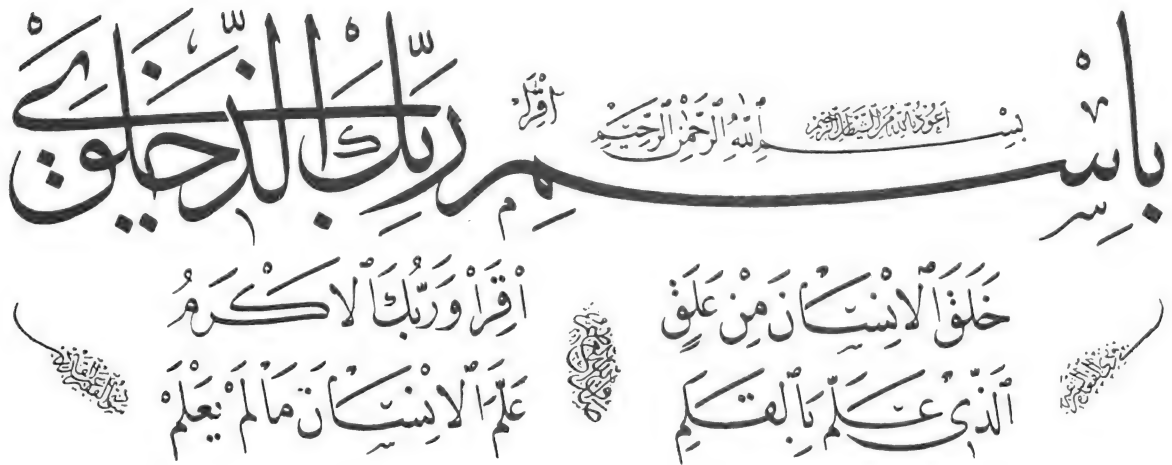 أعوذ بالله من الشيطان الرجيم
بِسْمِ ٱللّٰهِ ٱلرَّحْمٰنِ ٱلرَّحِيمِ
اِقْرَأْ
بِاسْمِ رَبِّكَ الَّذِي خَلَقَ
خَلَقَ ٱلْاِنْسَانَ مِنْ عَلَقٍ
اِقْرَأْ وَرَبُّكَ ٱلْاَكْرَمُ
ٱلَّذِي عَلَّمَ بِٱلْقَلَمِ
عَلَّمَ ٱلْاِنْسَانَ مَا لَمْ يَعْلَمْ